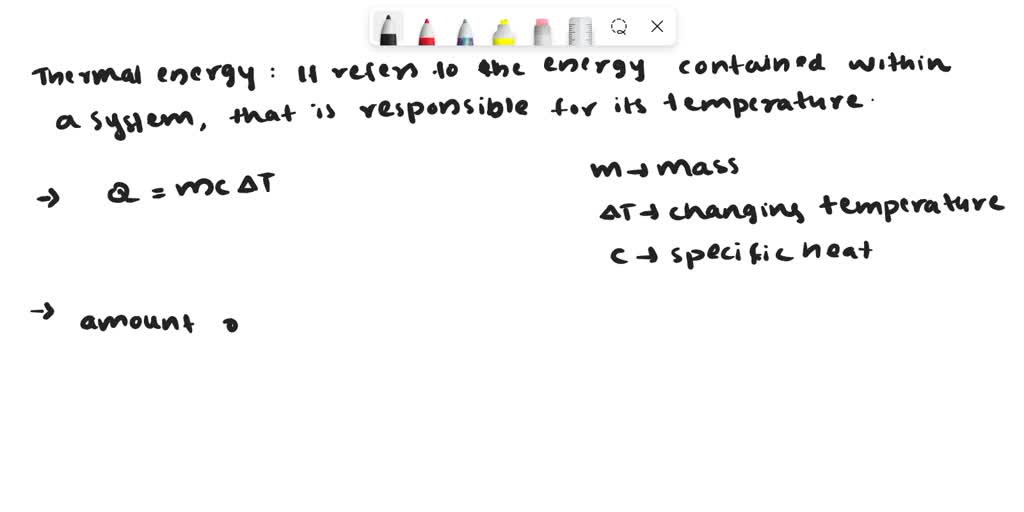 Thermal energy: It refers to the energy contained within
a system, that is responsible for its temperature.
→ Q = mcΔT
m → mass
ΔT → changing temperature
c → specific heat
→ amount o